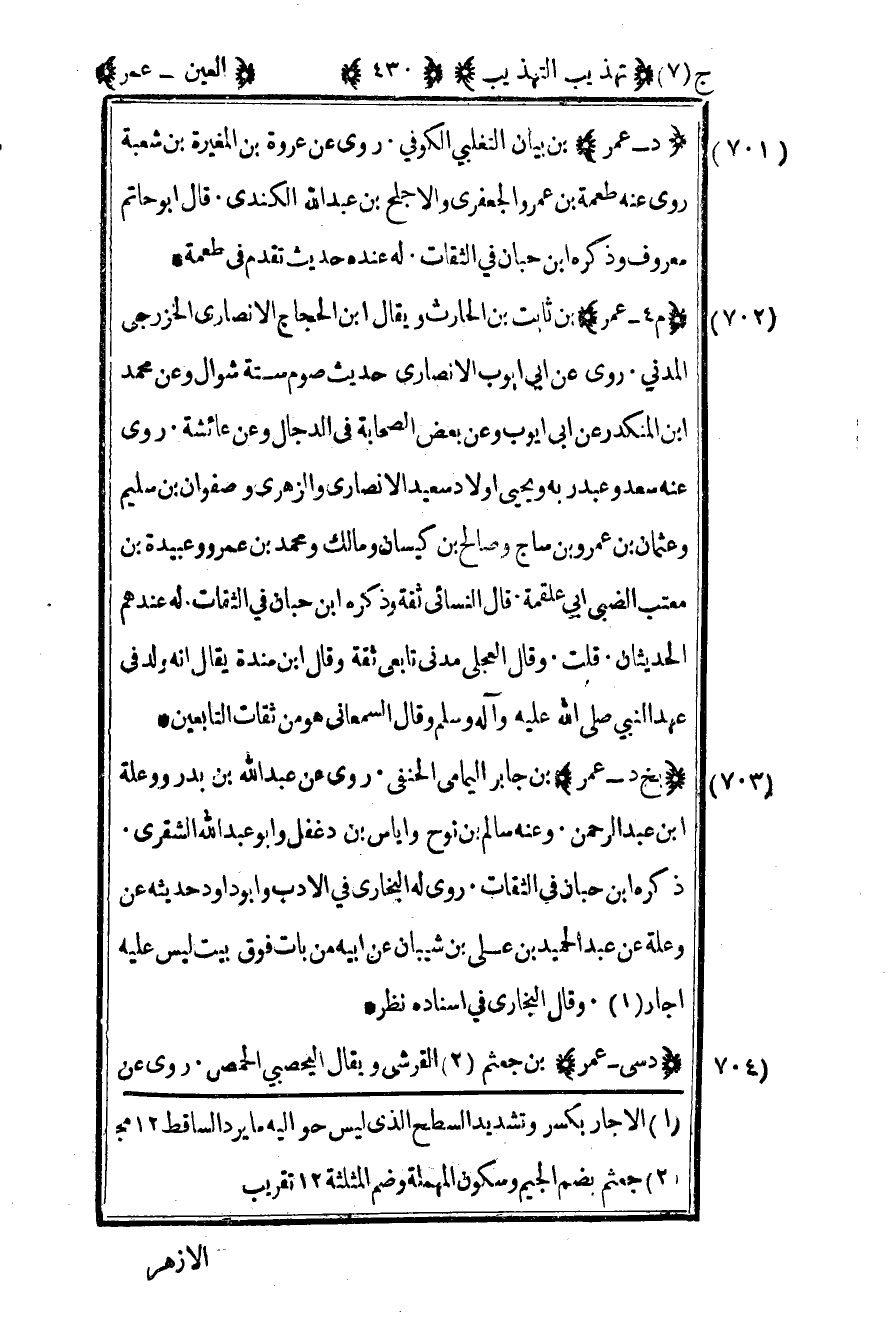 ج(٧) ﴿ تهذيب التهذيب ﴾ ﴿ ٤٣٠ ﴾ ﴿ العين ـ عمر ﴾
(٧٠١) ﴿ د ـ عمر ﴾ بن بيان التغلبي الكوفي · روى عن عروة بن المغيرة بن شعبة
روى عنه طعمة بن عمرو الجعفرى والاجلح بن عبدالله الكندى · قال ابوحاتم
معروف وذكره ابن حبان في الثقات · له عنده حديث تقدم فى طعمة*
(٧٠٢) ﴿ م٤ ـ عمر ﴾ بن ثابت بن الحارث ويقال ابن الحجاج الانصارى الخزرجى
المدني · روى عن ابي ايوب الانصارى حديث صوم ستة شوال وعن محمد
ابن المنكدر عن ابى ايوب وعن بعض الصحابة فى الدجال وعن عائشة · روى
عنه سعد وعبدر به ويحيى اولاد سعيد الانصارى والزهرى وصفوان بن سليم
وعثمان بن عمرو بن ساج وصالح بن كيسان ومالك ومحمد بن عمرو وعبيدة بن
معتب الضبى ابي علقمة · قال النسائى ثقة وذكره ابن حبان في الثقات · له عندهم
الحديثان · قلت · وقال العجلى مدنى تابعى ثقة وقال ابن مندة يقال انه ولد فى
عهد النبي صلى الله عليه وآله وسلم وقال السمعانى هو من ثقات التابعين*
(٧٠٣) ﴿ بخ د ـ عمر ﴾ بن جابر اليمامى الحنفى · روى عن عبدالله بن بدر ووعلة
ابن عبدالرحمن · وعنه سالم بن نوح واياس بن دغفل وابو عبدالله الشقرى ·
ذكره ابن حبان في الثقات · روى له البخارى في الادب وابوداود حديثه عن
وعلة عن عبدالحميد بن عـلى بن شيبان عن ابيه من بات فوق بيت ليس عليه
اجار(١) · وقال البخارى في اسناده نظر*
(٧٠٤ ﴿ دسى ـ عمر ﴾ بن جعثم (٢) القرشى ويقال اليحصبي الحمص · روى عن
(١) الاجار بكسر وتشديد السطح الذى ليس حواليه مايرد الساقط ١٢ مج
٢) جعثم بضم الجيم وسكون المهملة وضم المثلثة ١٢ تقريب
الازهر